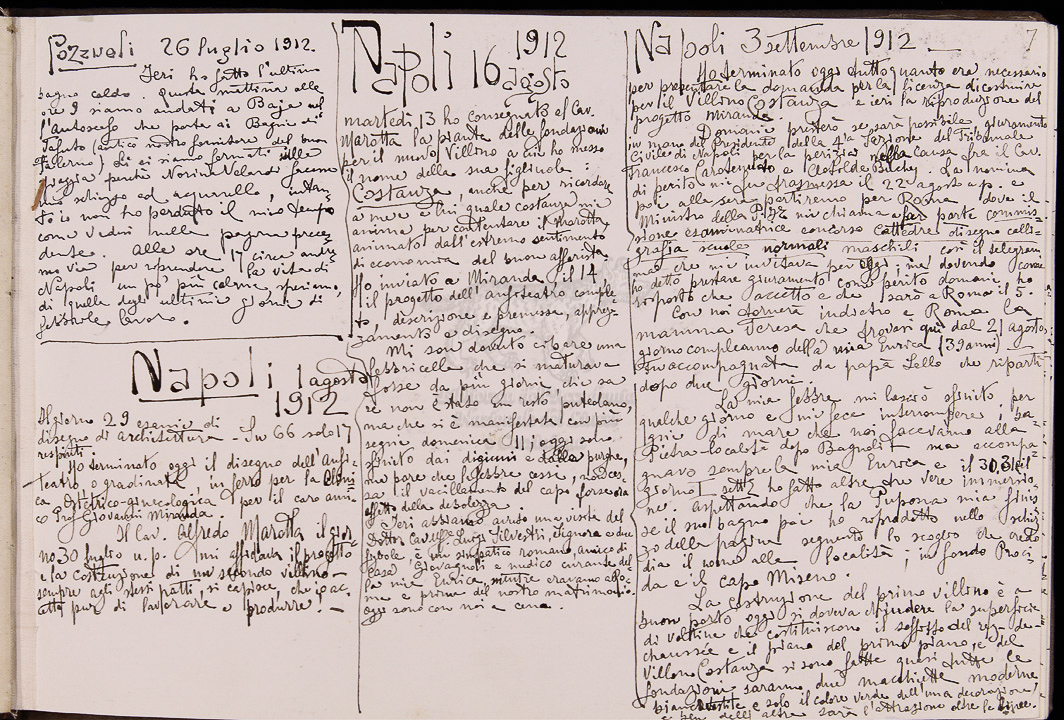 7
Pozzuoli 26 luglio 1912.
Ieri ho fatto l'ultimo
bagno caldo. Questa mattina alle
ore 9 siamo andati a Baja col
l'autoscafo che porta ai Bagni di
Tafuto (antico nostro fornitore del buon
Falerno) Là ci siamo fermati sulla
spiaggia perchè Norina Velardi facesse
uno schizzo ad acquarello, intan-
to io non ho perduto il mio tempo
come vedesi nella pagina prece-
dente. Alle ore 17 circa andia-
mo via per riprendere la vita di
Napoli un po' più calma, speriamo,
di quella degli ultimi giorni di
febbrile lavoro.
Napoli 1 agosto
1912
Il giorno 29 esame di
disegno di architettura - Su 66 solo 17
respinti.
Ho terminato oggi il disegno dell'Anfi-
teatro, o gradinata, in ferro per la Clini
ca Ostetrico-ginecologica per il caro ami-
co Prof Giovanni Miranda.
Il Cav. Alfredo Marotta il gior
no 30 luglio u.p. mi affidava il progetto
e la costruzione di un secondo villino -
sempre agli stessi patti, si capisce, che io ac
cetto pur di lavorare e produrre! -
Napoli 16 agosto 1912
martedì, 13 ho consegnato al Cav.
Marotta la pianta delle fondazioni
per il nuovo Villino a cui ho messo
il nome della sua figliuola
Costanza, anche per ricordare
a me e a lui, quale costanza mi
anima per contentare il Marotta,
animato dall'estremo sentimento
di economia del buon affarista.
Ho inviato a Miranda, il 14
il progetto dell'anfiteatro comple
to, descrizione e premessa, apprez-
zamento e disegno.
Mi son dovuto cibare una
febbricella che si maturava
forse da più giorni, chi sa
se non è stato un resto puteolano,
ma che si è manifestata con più
segni domenica 11; oggi sono
sfinito dai digiuni e dalla purga,
ma pare che la febbre cessi, non ces-
sa il vacillamento del capo forse ora
effetto della debolezza.
Ieri abbiamo avuto una visita del
Dottor Cav. Luigi Silvestri, signora e due
figliole, è un simpatico romano, amico di
casa Giovagnoli e medico curante del
la mia Enrica, mentre eravamo a Ro-
ma e prima del nostro matrimonio.
Oggi sono con noi a cena.
Napoli 3 settembre 1912 -
Ho terminato oggi tutto quanto era necessario
per presentare la domanda per la licenza di costruire
per il Villino Costanza e ieri la riproduzione del
progetto Miranda
Domani presterò se sarà possibile giuramento
in mano del Presidente della 4ª Sezione del Tribunale
Civile di Napoli per la perizia nella causa fra il Cav.
Francesco Carovenuto e Clotilde Buchy. La nomina
di perito mi fu trasmessa il 22 agosto u.p. e
poi alla sera partiremo per Roma dove il
Ministro della P. I. mi chiama a far parte commis-
sione esaminatrice concorso cattedre disegno calli-
grafia scuole normali maschili così il telegram
ma che mi invitava per oggi; ma dovendo, come
ho detto prestare giuramento come perito domani ho
risposto che accetto e che sarò a Roma il 5.
Con noi tornerà indietro a Roma la
mamma Teresa che trovasi qui dal 21 agosto,
giorno compleanno della mia Enrica (39 anni)
Fu accompagnata da papà Lello che ripartì
dopo due giorni.
La mia febbre mi lasciò sfinito per
qualche giorno e mi fece interrompere i ba
gni di mare che noi facevamo alla
Pietra - località dopo Bagnoli - ma accompa-
gnavo sempre la mia Enrica, e il 30, 31 e il
giorno 1 sett. ho fatto altre tre vere immersio
ni. Aspettando che la Pupona mia finis
se il suo bagno poi ho riprodotto nello schiz
zo della pagina seguente lo scoglio che credo
dia il nome alla località; in fondo Proci
da e il capo Miseno.
La costruzione del primo villino è a
buon porto oggi si doveva chiudere la superficie
di voltine che costituiscono il soffitto del rez-de-
chaussée e il piano del primo piano, e del
Villino Costanza si sono fatte quasi tutte le
fondazioni saranno due macchiette moderne
biancovestite e solo il colore verde dell'una decorazione
e dell'altra sarà l'attrazione oltre le linee.